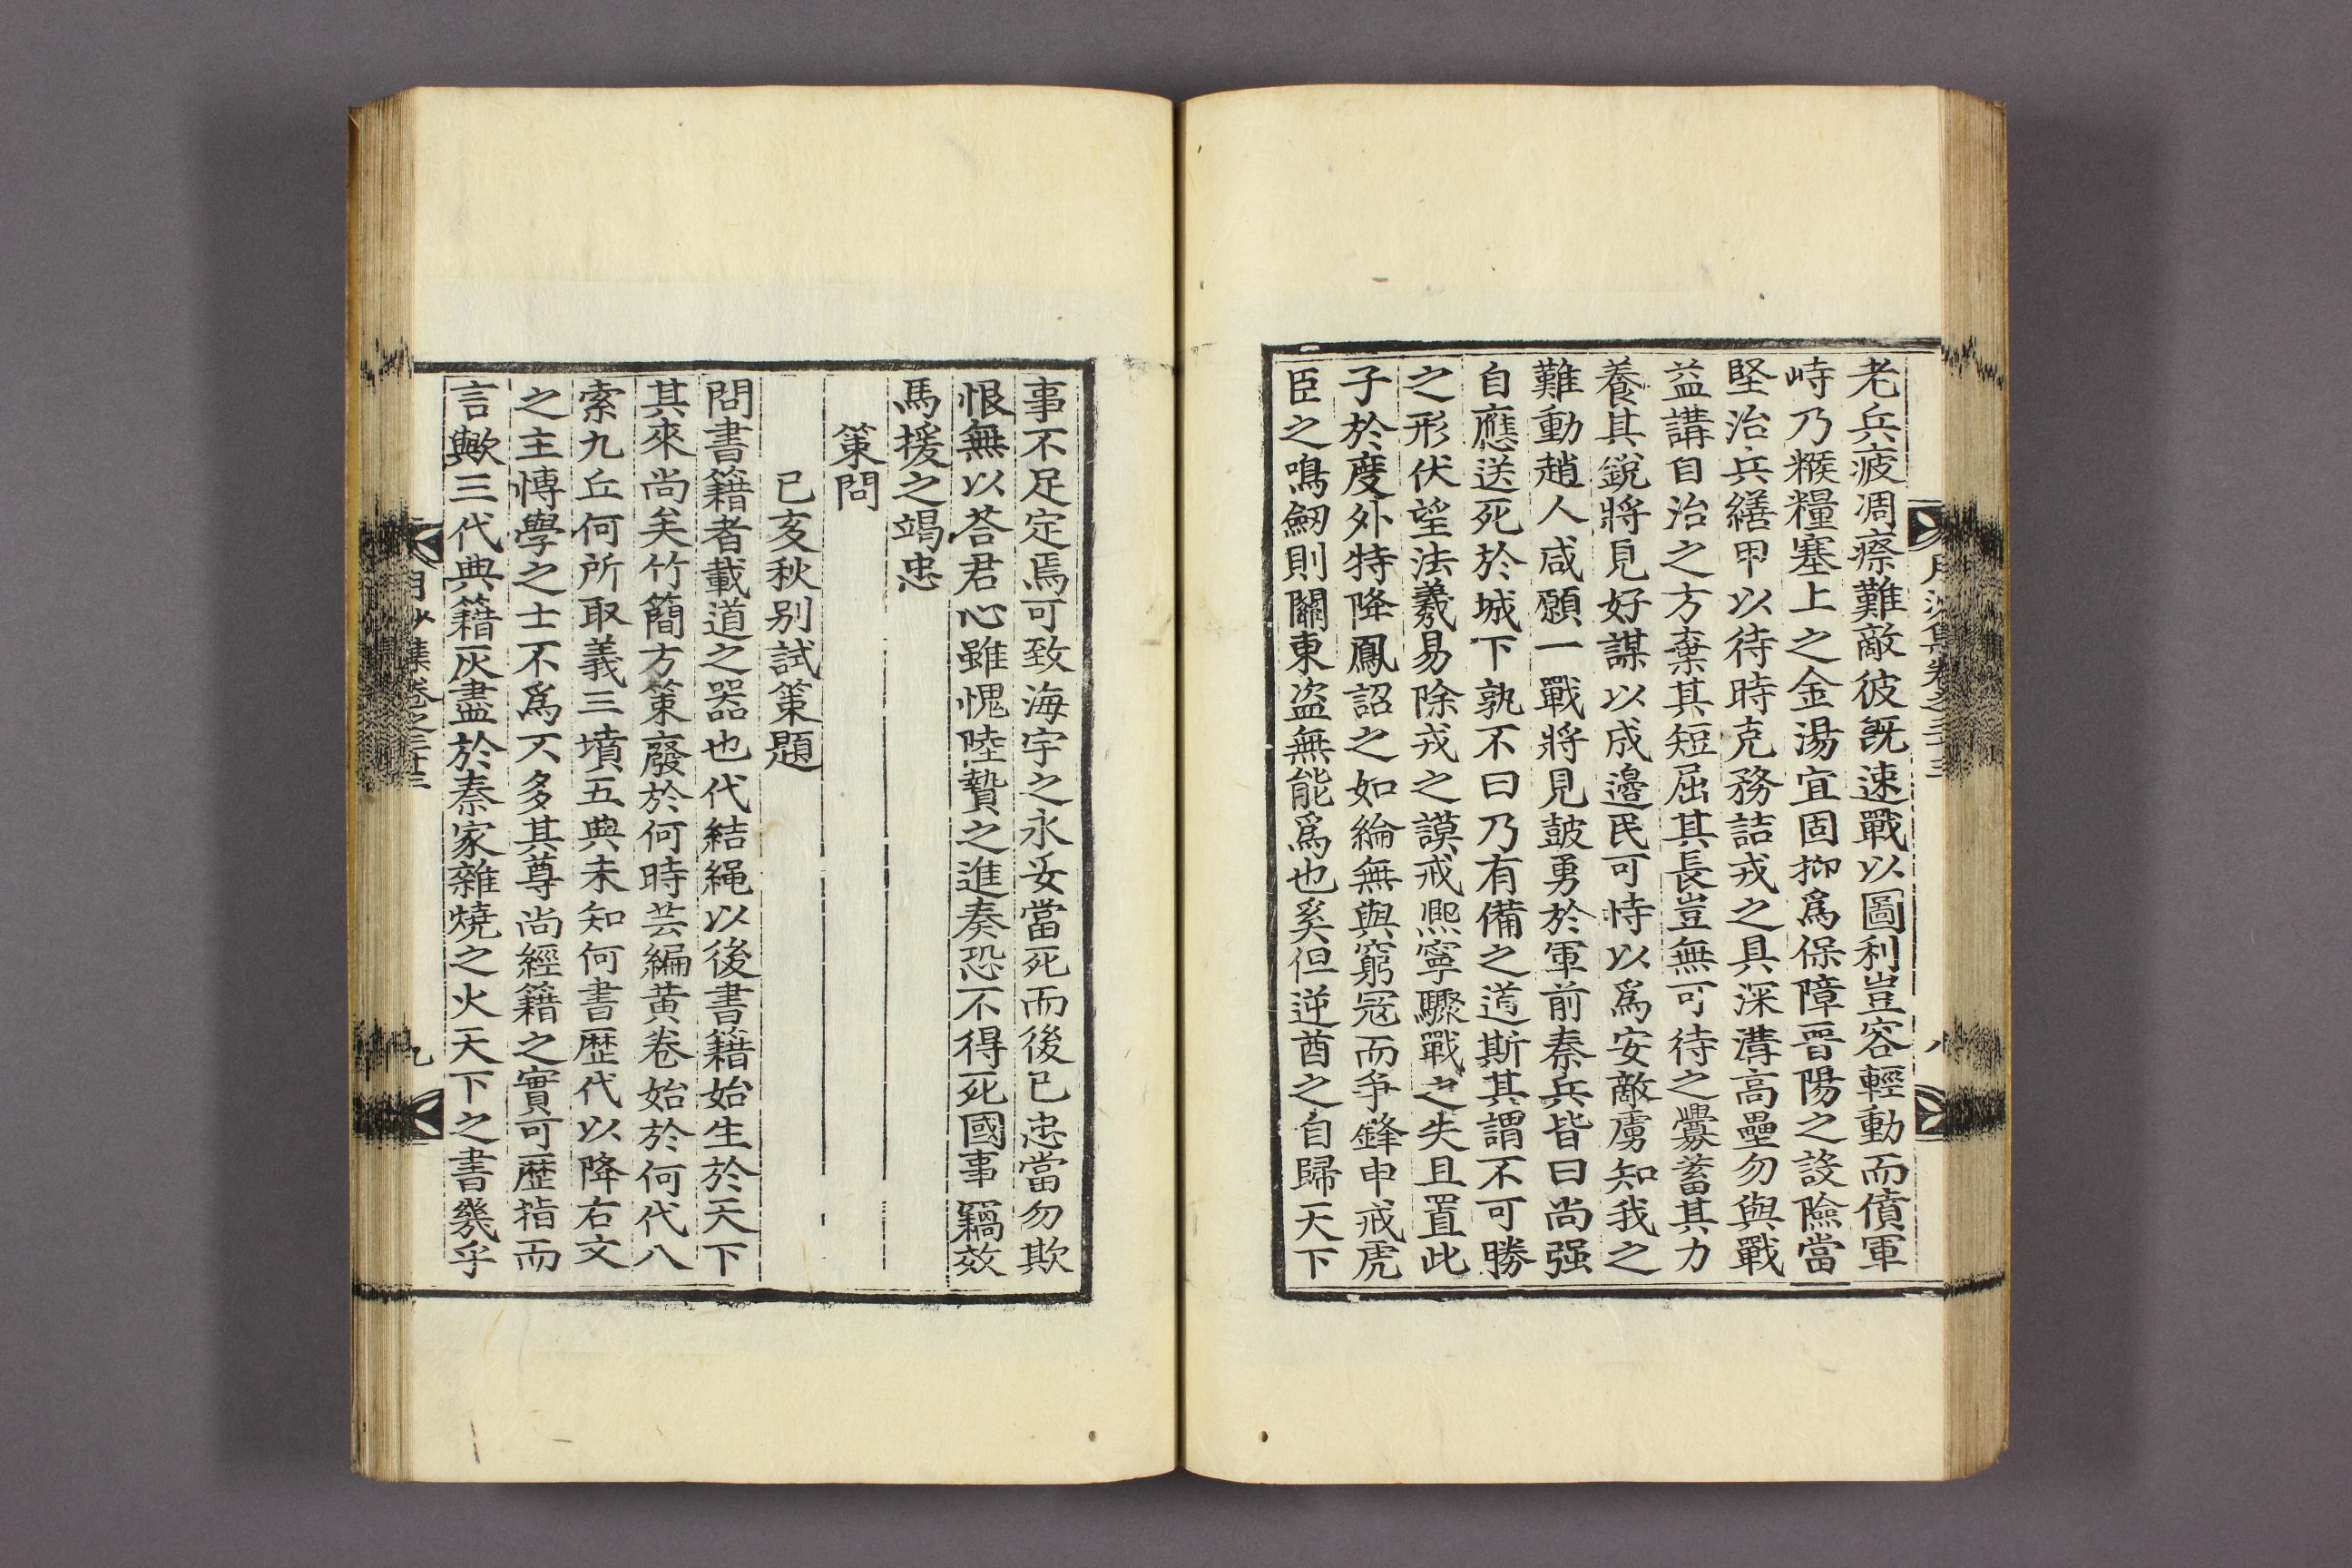 老兵疲凋瘵難敵彼旣速戰以圖利豈容輕動而僨軍
峙乃糇糧塞上之金湯宜固抑爲保障晉陽之設險當
堅治兵繕甲以待時克務詰戎之具深溝高壘勿與戰
益講自治之方棄其短屈其長豈無可待之釁蓄其力
養其銳將見好謀以成邊民可恃以爲安敵虜知我之
難動趙人咸願一戰將見鼓勇於軍前秦兵皆曰尙强
自應送死於城下孰不曰乃有備之道斯其謂不可勝
之形伏望法羲易除戎之謨戒熙寧驟戰之失且置此
子於度外特降鳳詔之如綸無與窮寇而爭鋒申戒虎
臣之鳴劒則關東盗無能爲也奚但逆酋之自歸天下
月沙集卷之三十三
八
事不足定焉可致海宇之永妥當死而後已忠當勿欺
恨無以荅君心雖愧陸贄之進奏恐不得死國事竊效
馬援之竭忠
策問
己亥秋别試策題
問書籍者載道之器也代結繩以後書籍始生於天下
其來尙矣竹簡方策廢於何時芸編黃卷始於何代八
索九丘何所取義三墳五典未知何書歷代以降右文
之主博學之士不爲不多其尊尙經籍之實可歷指而
言歟三代典籍灰盡於秦家雜燒之火天下之書幾乎
月沙集卷之三十三
九